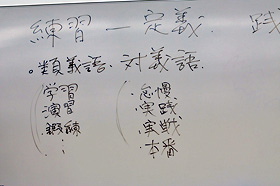 練習 — 定義. 践
。類義語. 対義語
学習
演習
・怠慢
・実践
・実戦
・本番